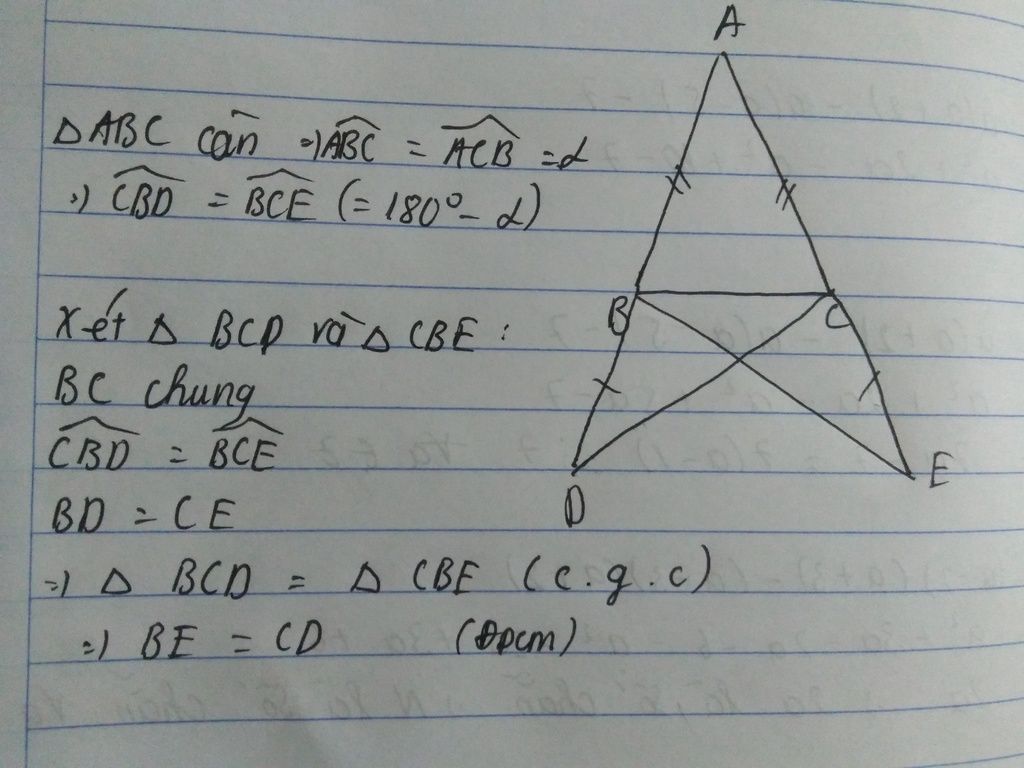 △ABC cân ⇒ \widehat{ABC} = \widehat{ACB} = α
⇒ \widehat{CBD} = \widehat{BCE} (= 180° - α)
Xét △ BCD và △ CBE :
BC chung
\widehat{CBD} = \widehat{BCE}
BD = CE
⇒ △ BCD = △ CBE (c.g.c)
⇒ BE = CD (Đpcm)
A
B
C
D
E